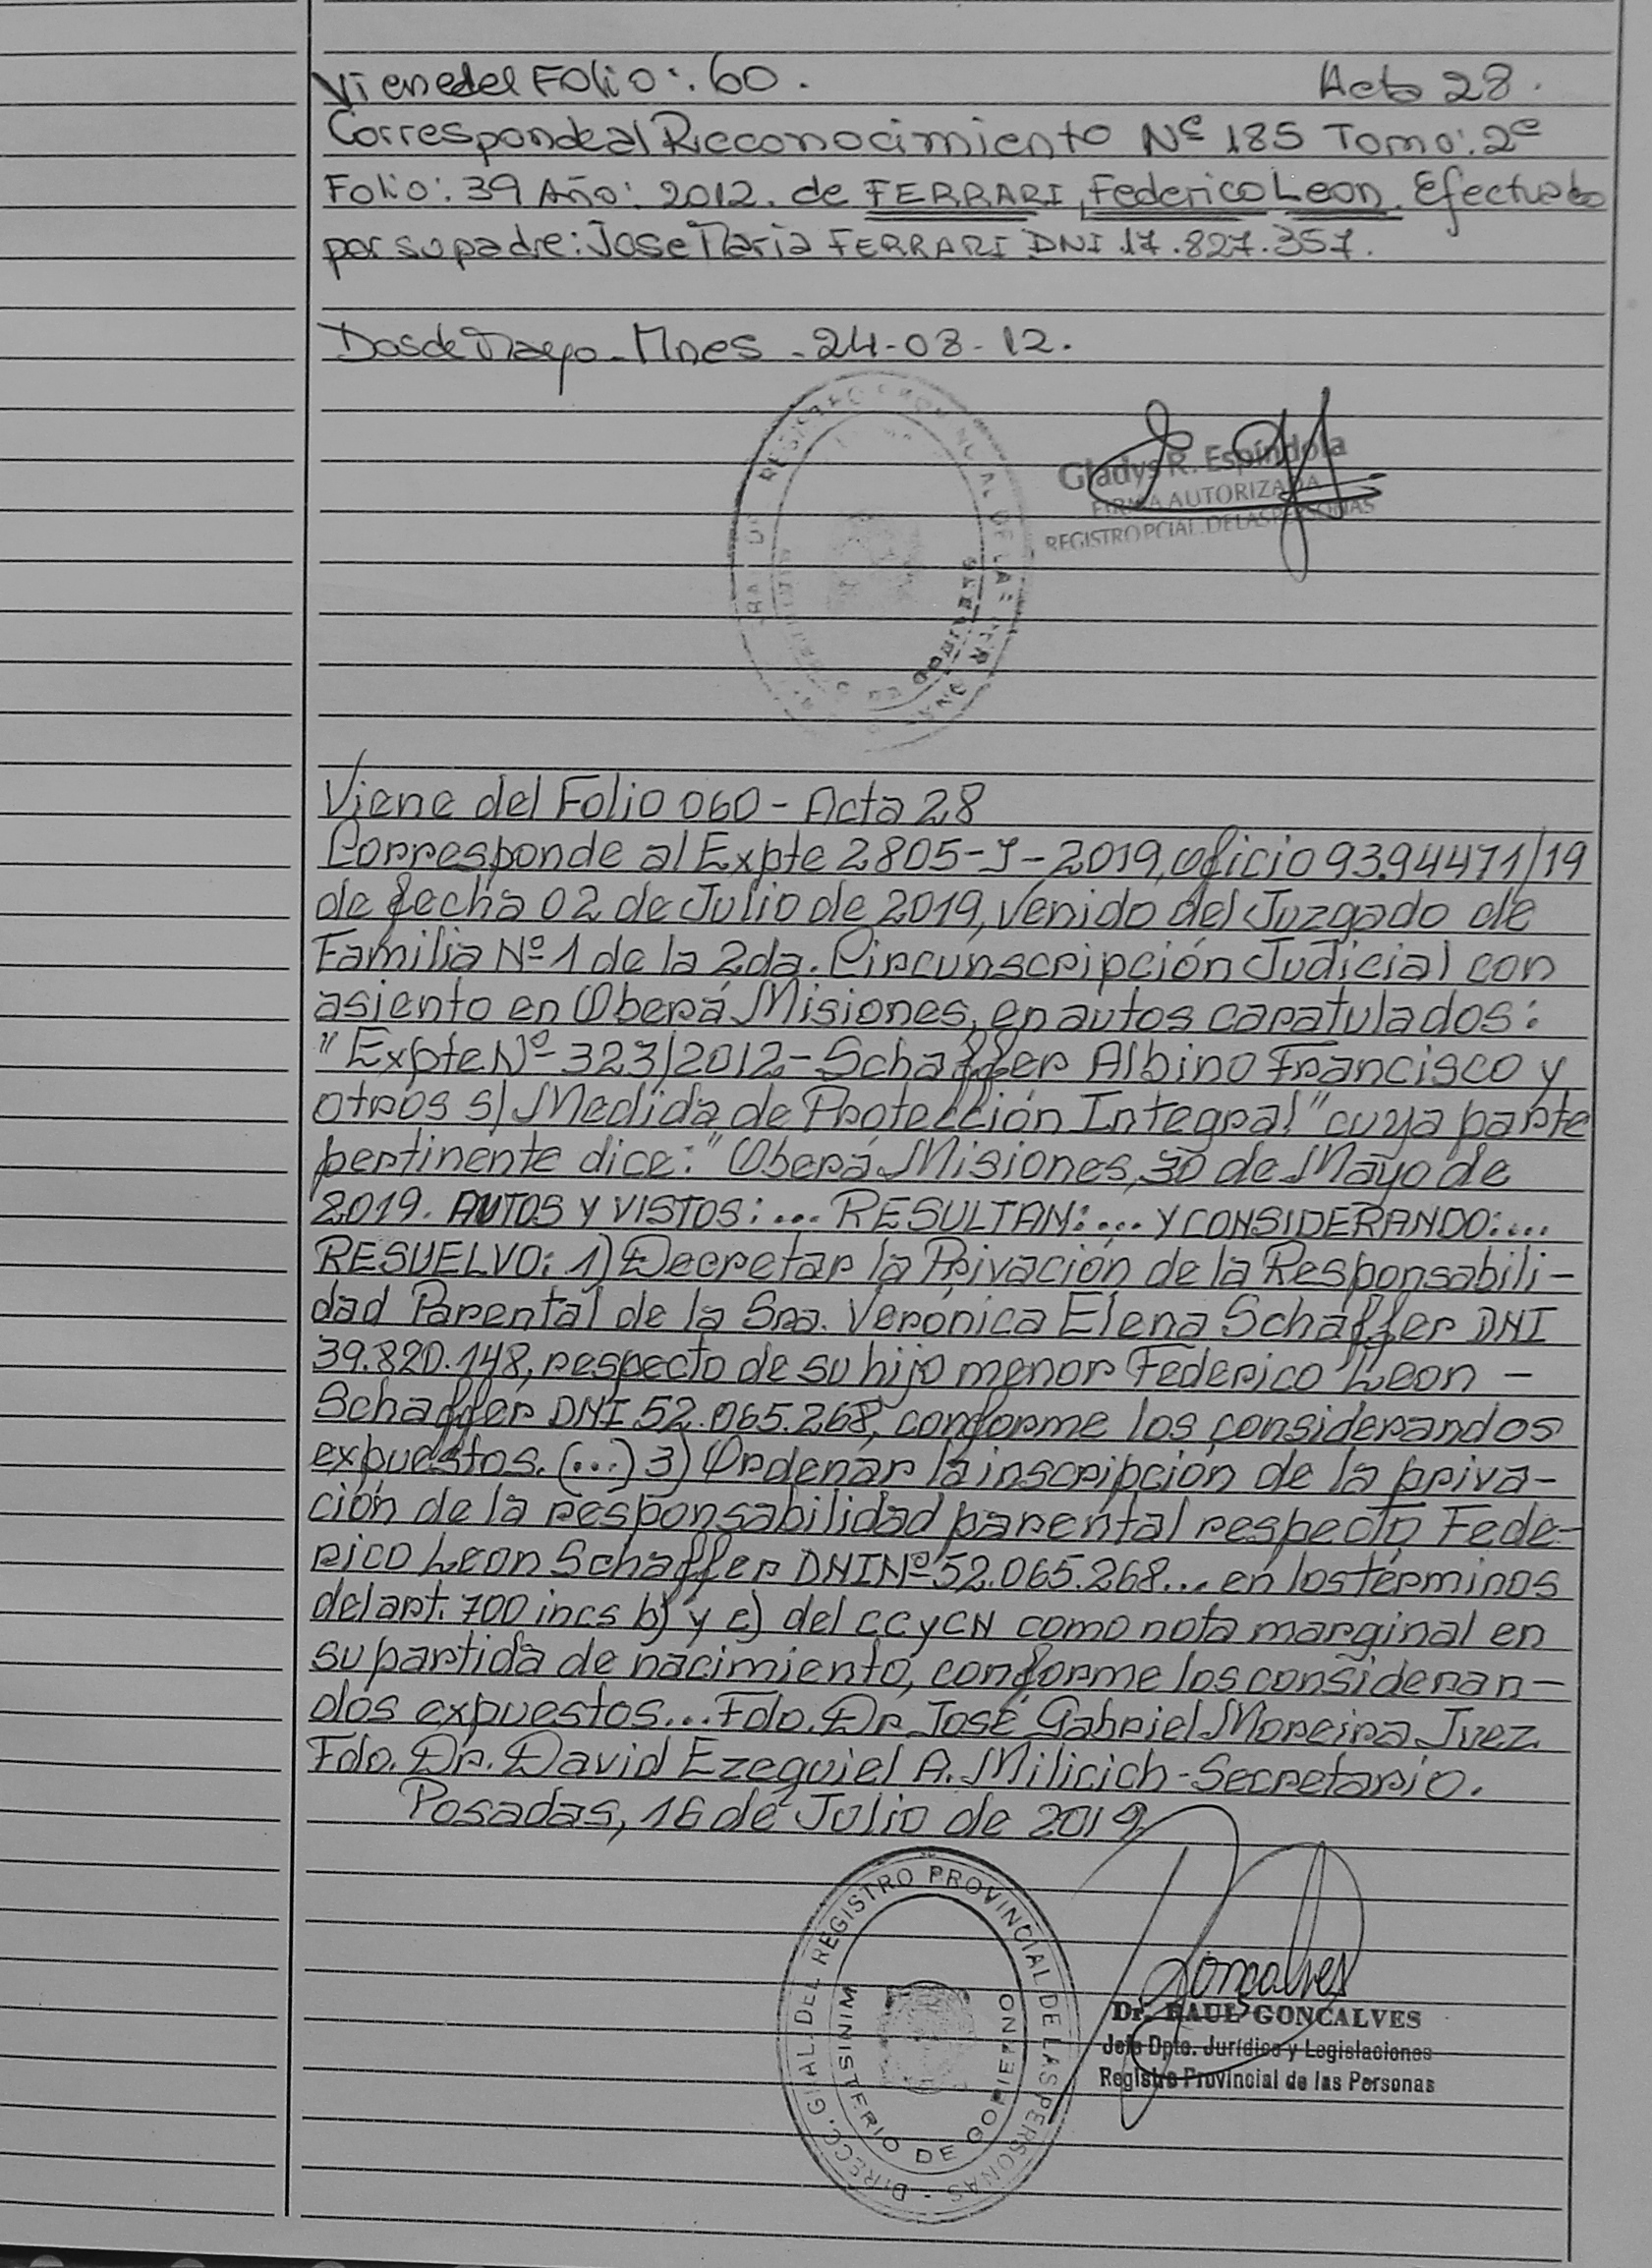 Viene del Folio: 60. Acta 28.
Corresponde al Reconocimiento Nº 185 Tomo: 2º
Folio: 39 Año: 2012. de FERRARI, Federico Leon. Efectuado
por su padre: Jose Maria FERRARI DNI 17.827.357.
Dos de Mayo - Mnes - 24-08-12.
REGISTRO PROVINCIAL DE LAS PERSONAS
Gladys R. Espíndola
FIRMA AUTORIZADA
REGISTRO PCIAL. DE LAS PERSONAS
Viene del Folio 060 - Acta 28
Corresponde al Expte 2805-J-2019, oficio 9394471/19
de fecha 02 de Julio de 2019, venido del Juzgado de
Familia Nº 1 de la 2da. Circunscripción Judicial con
asiento en Oberá Misiones, en autos caratulados:
"Expte Nº 323/2012 - Schaffer Albino Francisco y
otros s/ Medida de Protección Integral" cuya parte
pertinente dice: "Oberá Misiones, 30 de Mayo de
2019. AUTOS Y VISTOS:... RESULTAN:... Y CONSIDERANDO:...
RESUELVO: 1) Decretar la Privación de la Responsabili-
dad Parental de la Sra. Verónica Elena Schaffer DNI
39.820.148, respecto de su hijo menor Federico Leon -
Schaffer DNI 52.065.268, conforme los considerandos
expuestos. (...) 3) Ordenar la inscripción de la priva-
ción de la responsabilidad parental respecto Fede-
rico Leon Schaffer DNI Nº 52.065.268... en los términos
del art. 700 incs b) y c) del CCyCN como nota marginal en
su partida de nacimiento, conforme los consideran-
dos expuestos... Fdo. Dr José Gabriel Moreira Juez.
Fdo. Dr. David Ezequiel A. Milicich - Secretario.
Posadas, 16 de Julio de 2019.
DIRECC. GRAL. DEL REGISTRO PROVINCIAL DE LAS PERSONAS -
MINISTERIO DE GOBIERNO
Goncalves
Dr. RAUL GONCALVES
Jefe Dpto. Jurídico y Legislaciones
Registro Provincial de las Personas